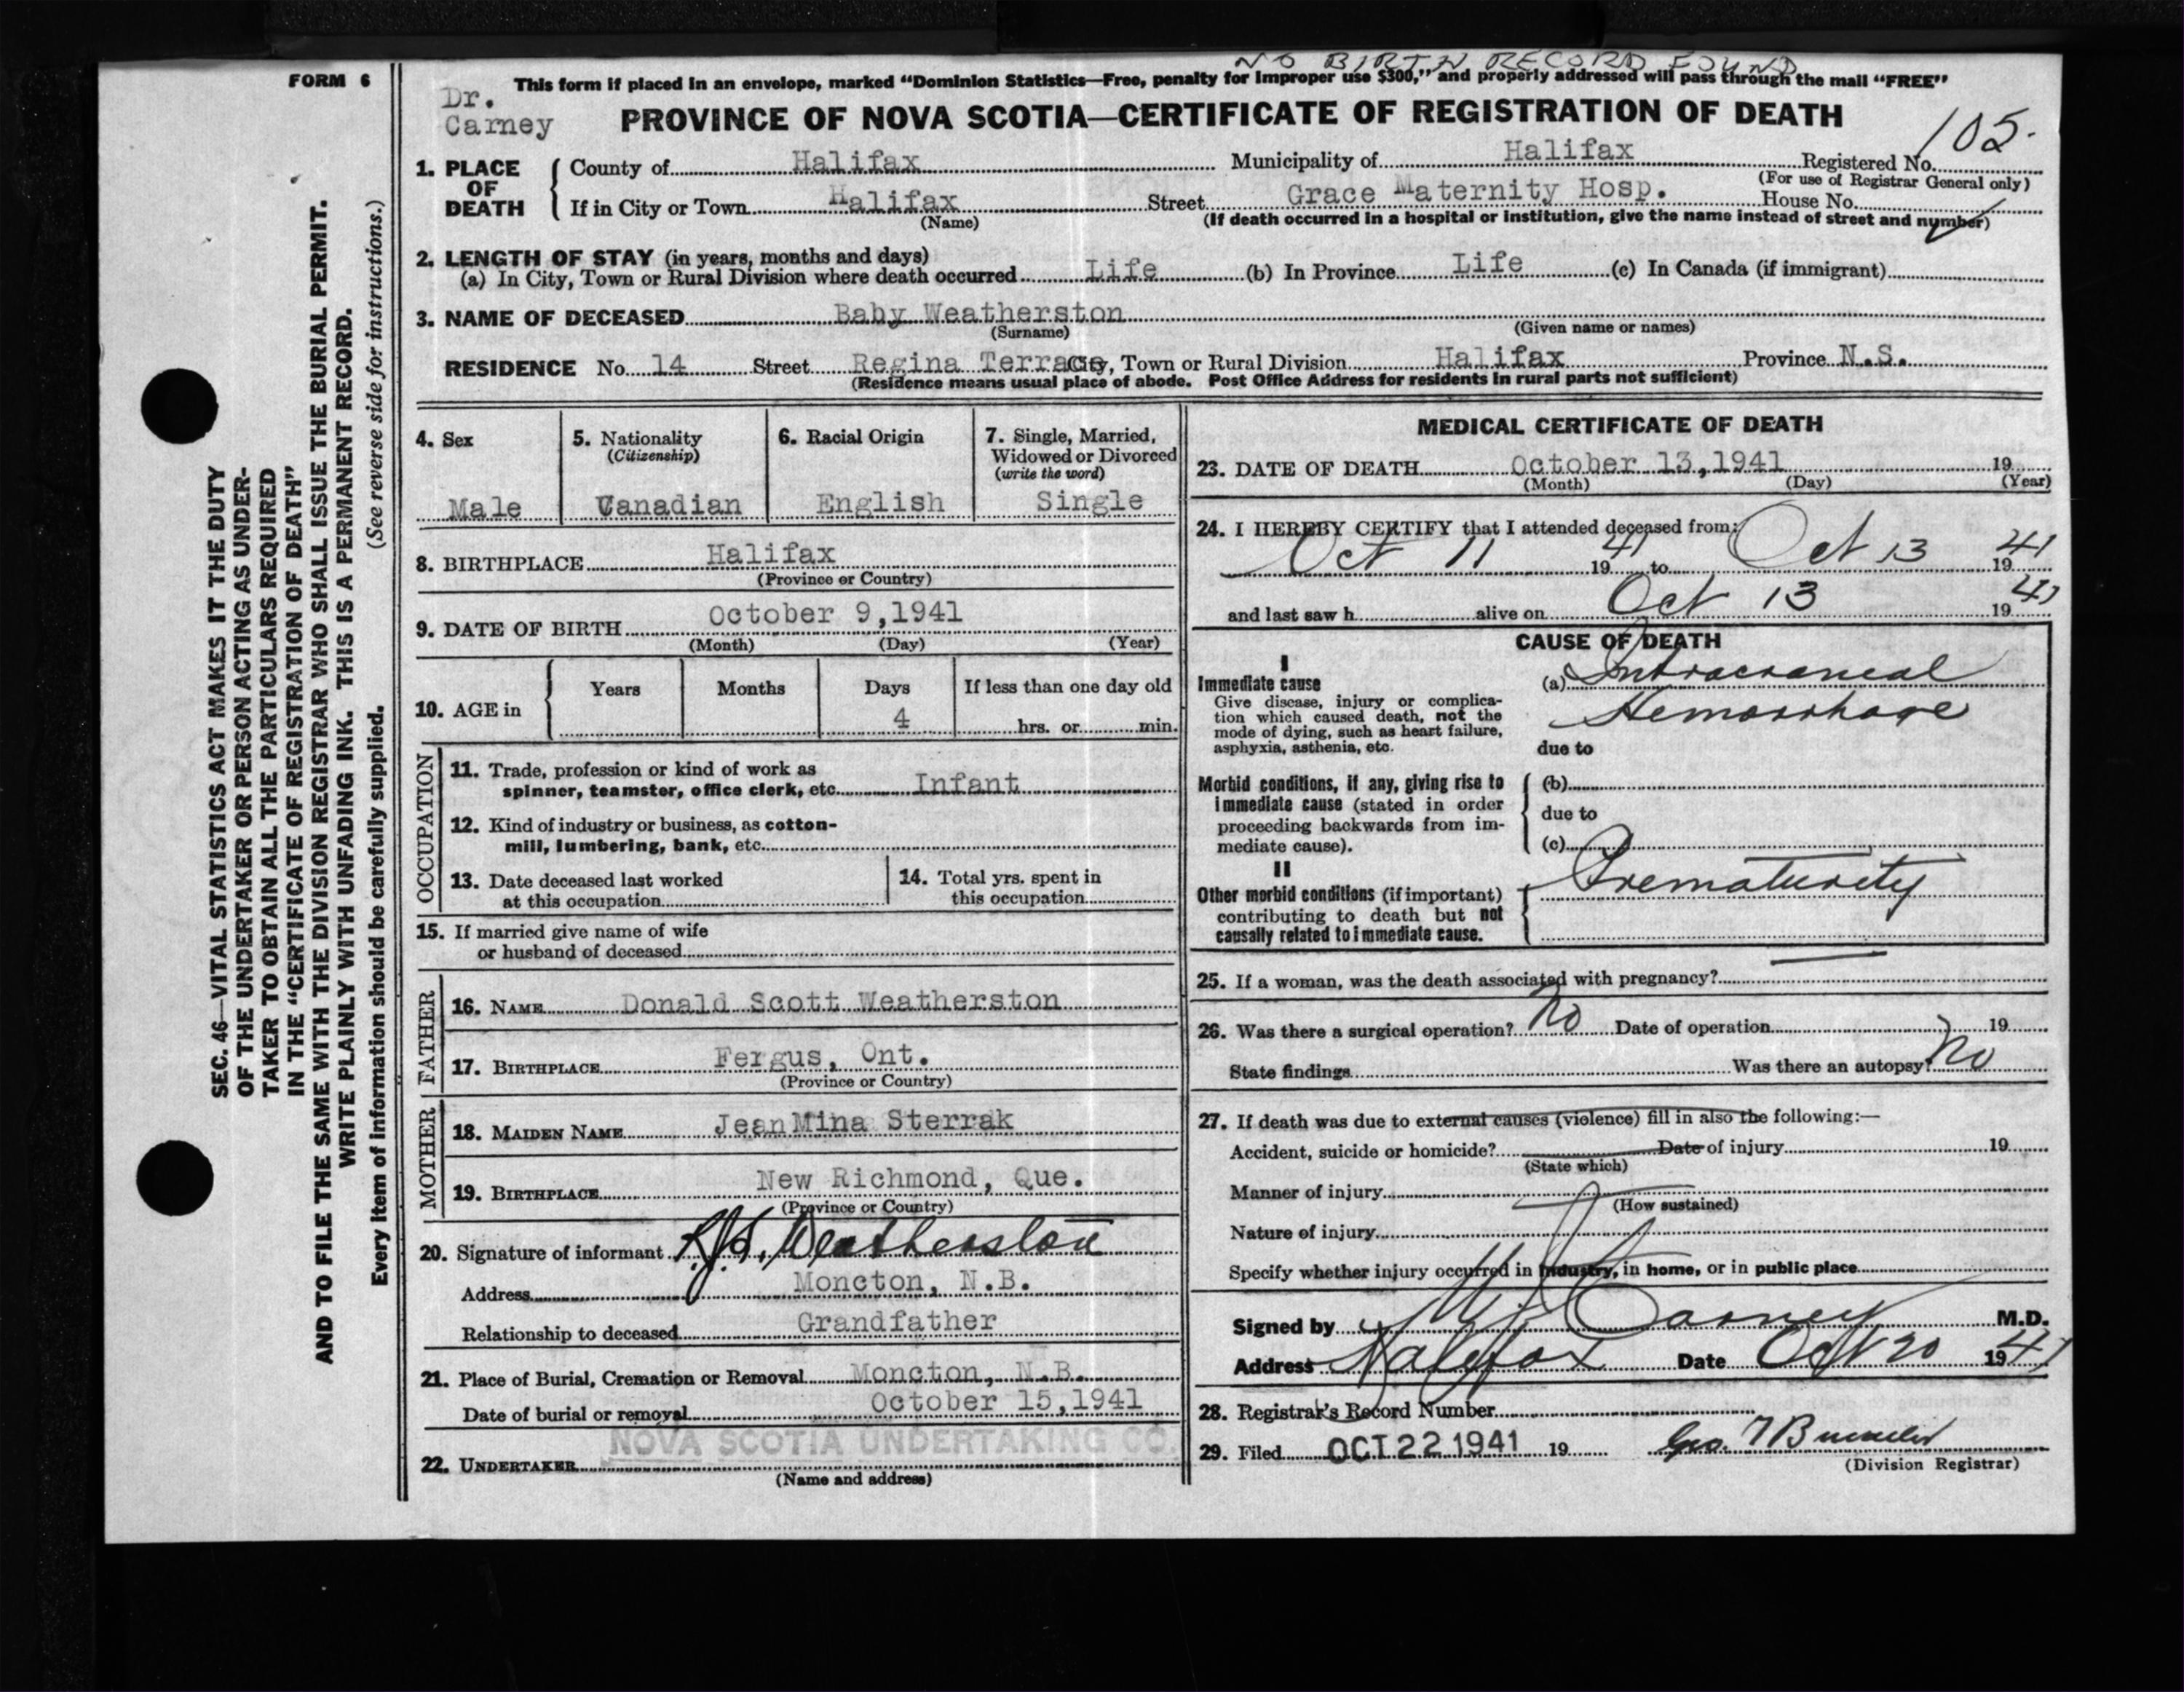 NO BIRTH RECORD FOUND
FORM 6
This form if placed in an envelope, marked “Dominion Statistics—Free, penalty for improper use $300,” and properly addressed will pass through the mail “FREE”
Dr.
Carney
PROVINCE OF NOVA SCOTIA—CERTIFICATE OF REGISTRATION OF DEATH
105.
1. PLACE OF DEATH
County of Halifax Municipality of Halifax Registered No.
(For use of Registrar General only)
If in City or Town Halifax Street Grace Maternity Hosp. House No.
(Name) (If death occurred in a hospital or institution, give the name instead of street and number)
2. LENGTH OF STAY (in years, months and days)
(a) In City, Town or Rural Division where death occurred Life (b) In Province Life (c) In Canada (if immigrant)
3. NAME OF DECEASED Baby Weatherston
(Surname) (Given name or names)
RESIDENCE No. 14 Street Regina Terrace City, Town or Rural Division Halifax Province N.S.
(Residence means usual place of abode. Post Office Address for residents in rural parts not sufficient)
4. Sex
Male
5. Nationality
(Citizenship)
Canadian
6. Racial Origin
English
7. Single, Married,
Widowed or Divorced
(write the word)
Single
8. BIRTHPLACE Halifax
(Province or Country)
9. DATE OF BIRTH October 9,1941
(Month) (Day) (Year)
10. AGE in
Years Months Days If less than one day old
4 hrs. or min.
OCCUPATION
11. Trade, profession or kind of work as
spinner, teamster, office clerk, etc. Infant
12. Kind of industry or business, as cotton-
mill, lumbering, bank, etc.
13. Date deceased last worked
at this occupation
14. Total yrs. spent in
this occupation
15. If married give name of wife
or husband of deceased
FATHER
16. NAME Donald Scott Weatherston
17. BIRTHPLACE Fergus, Ont.
(Province or Country)
MOTHER
18. MAIDEN NAME Jean Mina Sterrak
19. BIRTHPLACE New Richmond, Que.
(Province or Country)
20. Signature of informant Weatherston
Address Moncton, N.B.
Relationship to deceased Grandfather
21. Place of Burial, Cremation or Removal Moncton, N.B.
Date of burial or removal October 15,1941
NOVA SCOTIA UNDERTAKING CO.
22. UNDERTAKER
(Name and address)
MEDICAL CERTIFICATE OF DEATH
23. DATE OF DEATH October 13,1941 19
(Month) (Day) (Year)
24. I HEREBY CERTIFY that I attended deceased from:
Oct 11 19 41 to Oct 13 19 41
and last saw h alive on Oct 13 19 41
CAUSE OF DEATH
I
Immediate cause
Give disease, injury or complica-
tion which caused death, not the
mode of dying, such as heart failure,
asphyxia, asthenia, etc.
(a) Intracraneal
Hemorrhage
due to
Morbid conditions, if any, giving rise to
immediate cause (stated in order
proceeding backwards from im-
mediate cause).
(b)
due to
(c)
II
Other morbid conditions (if important)
contributing to death but not
causally related to immediate cause.
Prematurity
25. If a woman, was the death associated with pregnancy?
26. Was there a surgical operation? No Date of operation 19
State findings Was there an autopsy? No
27. If death was due to external causes (violence) fill in also the following:—
Accident, suicide or homicide? Date of injury 19
(State which)
Manner of injury
(How sustained)
Nature of injury
Specify whether injury occurred in industry, in home, or in public place
Signed by Carney M.D.
Address Halifax Date Oct 20 19 41
28. Registrar's Record Number
29. Filed OCT 22 1941 19 Geo.
(Division Registrar)
SEC. 46—VITAL STATISTICS ACT MAKES IT THE DUTY
OF THE UNDERTAKER OR PERSON ACTING AS UNDER-
TAKER TO OBTAIN ALL THE PARTICULARS REQUIRED
IN THE “CERTIFICATE OF REGISTRATION OF DEATH”
AND TO FILE THE SAME WITH THE DIVISION REGISTRAR WHO SHALL ISSUE THE BURIAL PERMIT.
WRITE PLAINLY WITH UNFADING INK. THIS IS A PERMANENT RECORD.
Every item of information should be carefully supplied. (See reverse side for instructions.)